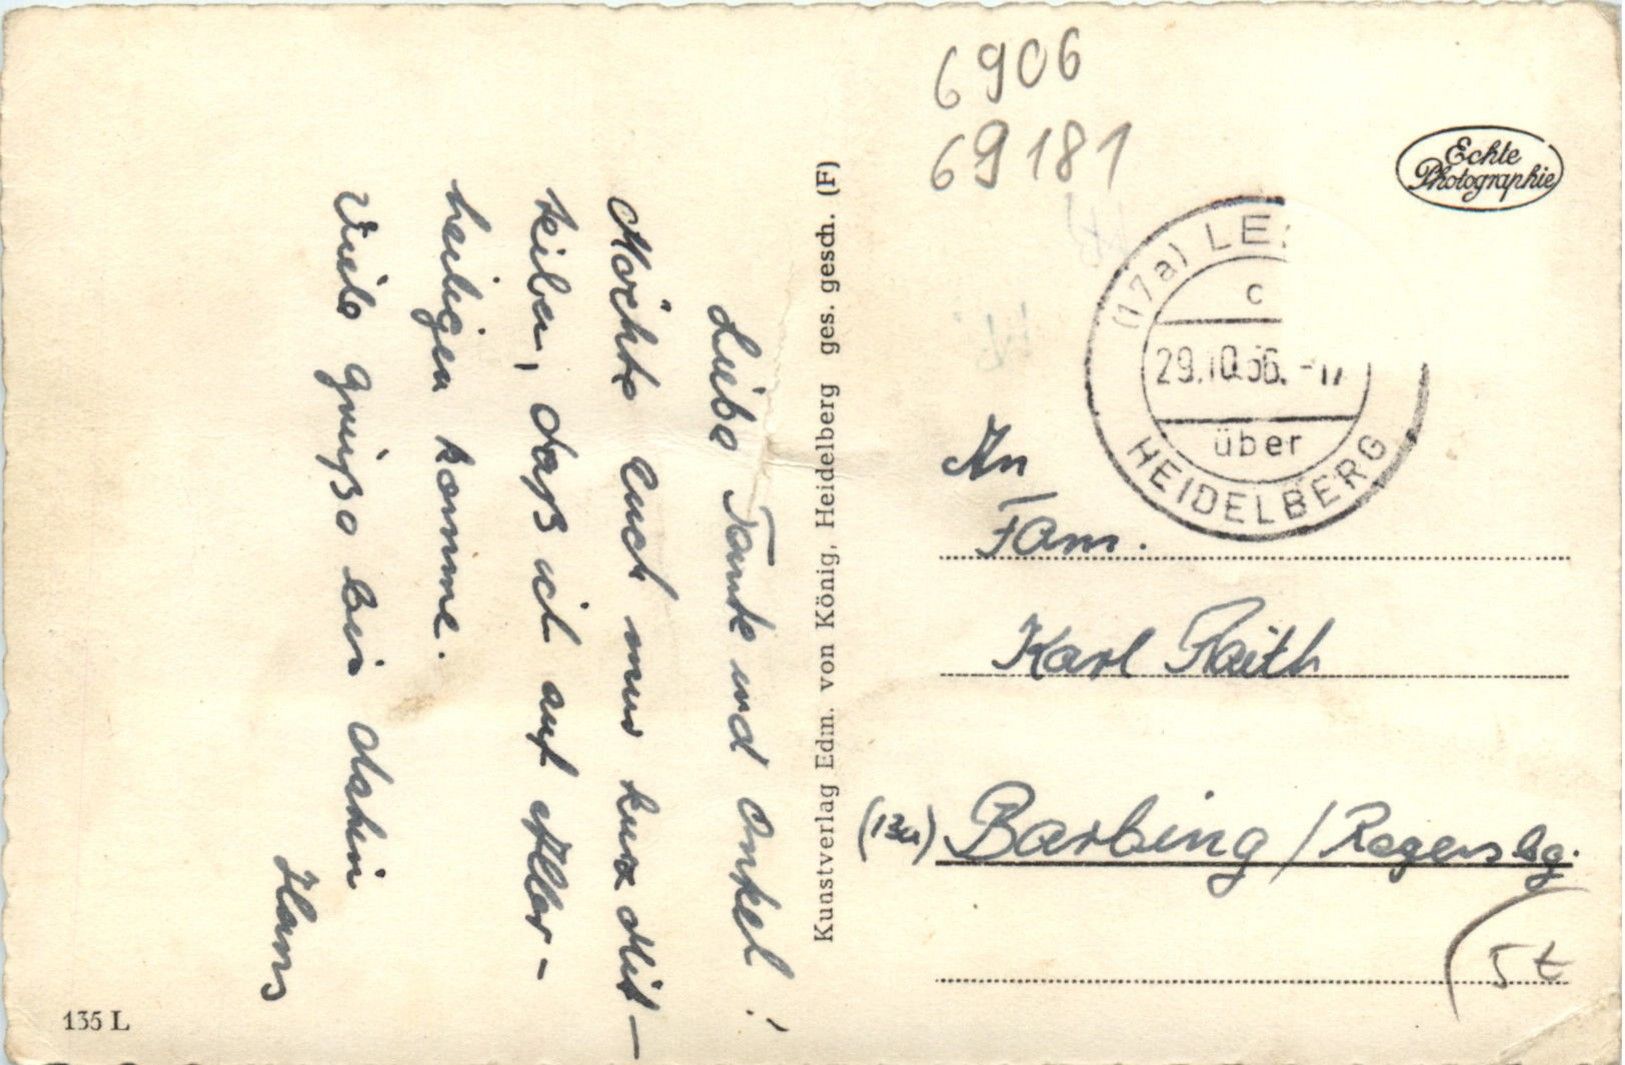 Liebe Tante und Onkel!
Möchte Euch nur kurz Mit-
teilen, daß ich auf Aller-
heiligen komme.
Viele Grüße bis dahin
Hans
135 L
Kunstverlag Edm. von König, Heidelberg ges. gesch. (F)
6906
69181
Echte
Photographie
(17a) LE
c
29.10.56.-17
über
HEIDELBERG
An
Fam.
Karl Raith
(13a) Barbing / Regensbg.
5 t